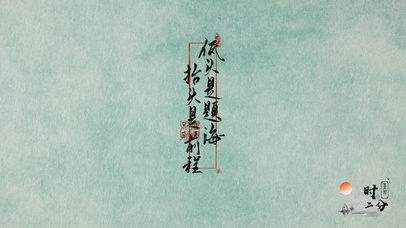 低头是题海
抬头是前程
时
二分